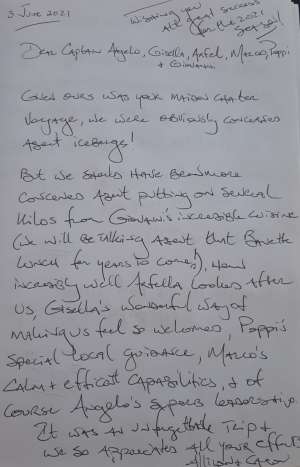 3 June 2021
Wishing you
all great success
for the 2021
season!
Dear Captain Angelo, Gisella, Marco, Poppi
+ Giovanni
Given ours was your maiden charter
voyage, we were obviously concerned
agent icebergs!
But we should have been more
concerned agent putting on several
kilos from Giovanni's incredible cuisine
(we will be talking agent that
lunch for years to come!), how
incredibly well looked after
us, Gisella's wonderful way of
making us feel so welcomed, Poppi's
special local guidance, Marco's
calm + efficient capabilities, & of
course Angelo's superb leadership.
It was an unforgettable trip &
we so appreciated all your effort